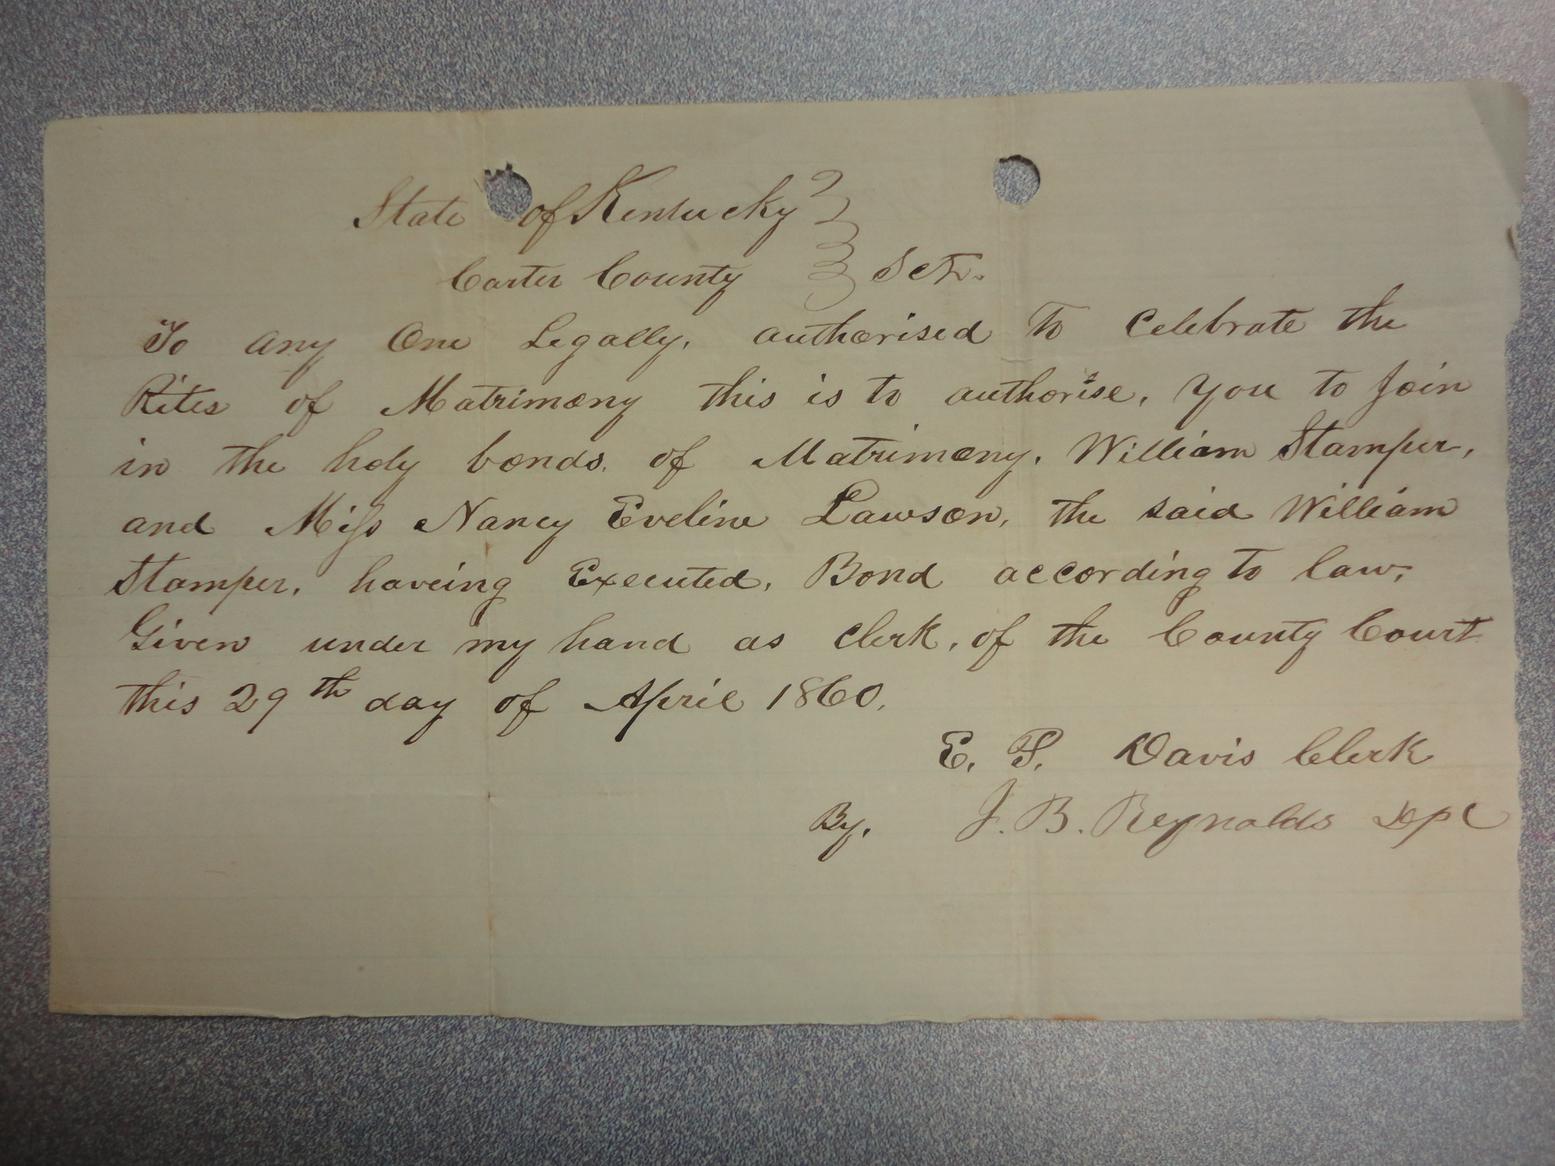 State of Kentucky
Carter County } Sct.
To any One Legally, authorised To Celebrate the
Rites of Matrimony this is to authorise, you to Join
in the holy bonds, of Matrimony, William Stamper,
and Miss Nancy Eveline Lawson, the said William
Stamper, haveing Executed, Bond according to law,
Given under my hand as Clerk, of the County Court
this 29th day of April 1860,
E. F. Davis Clerk
By, J. B. Reynolds Dpt